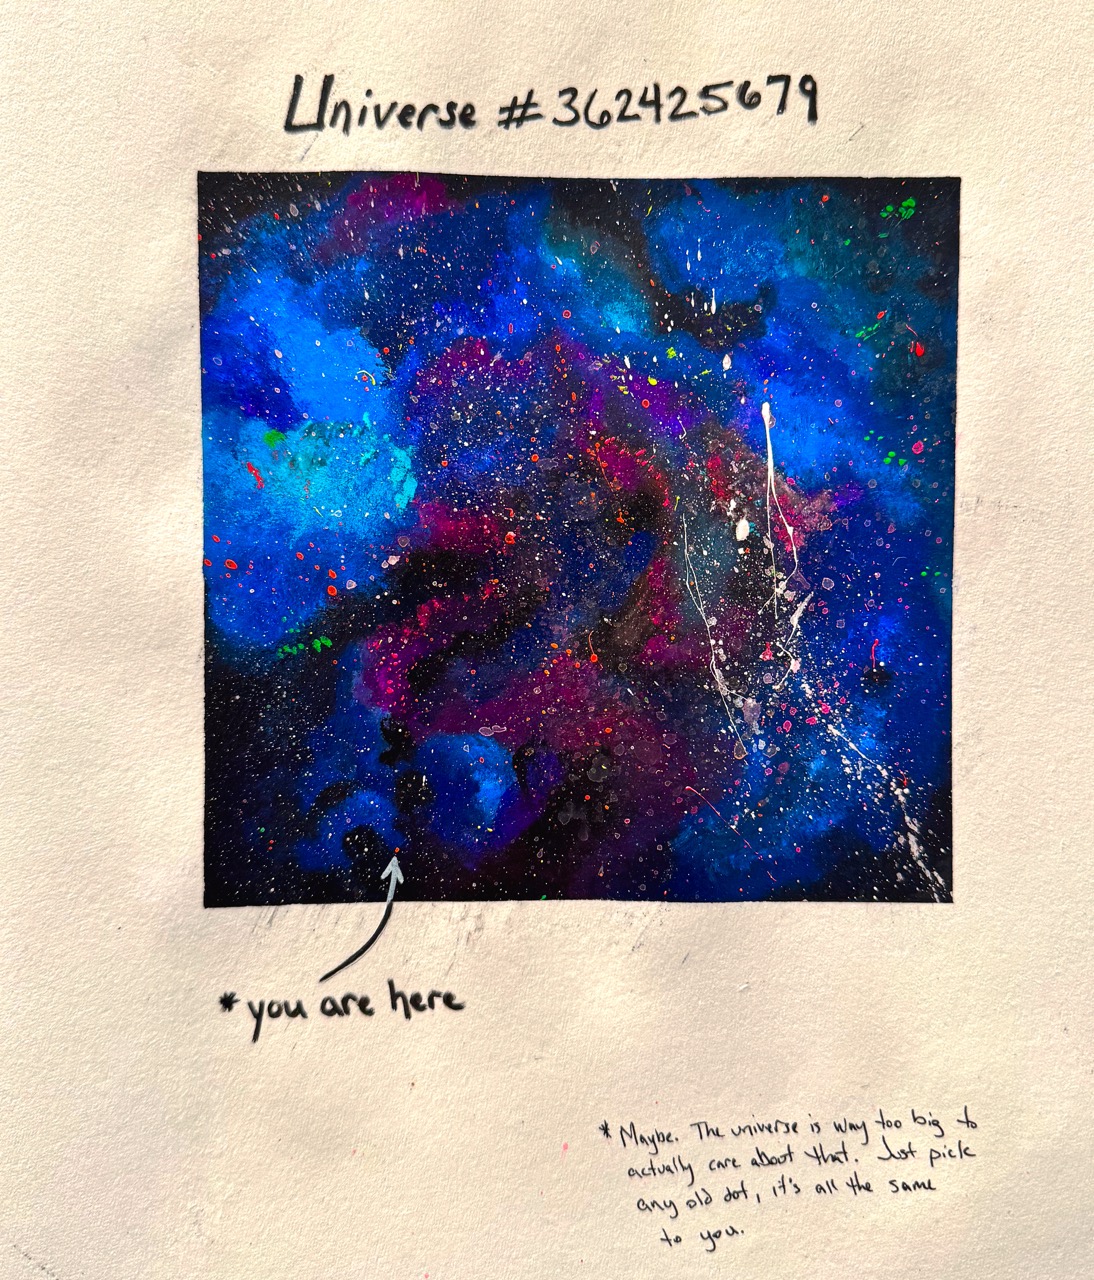 Universe #362425679
*you are here
* Maybe. The universe is way too big to
actually care about that. Just pick
any old dot, it's all the same
to you.